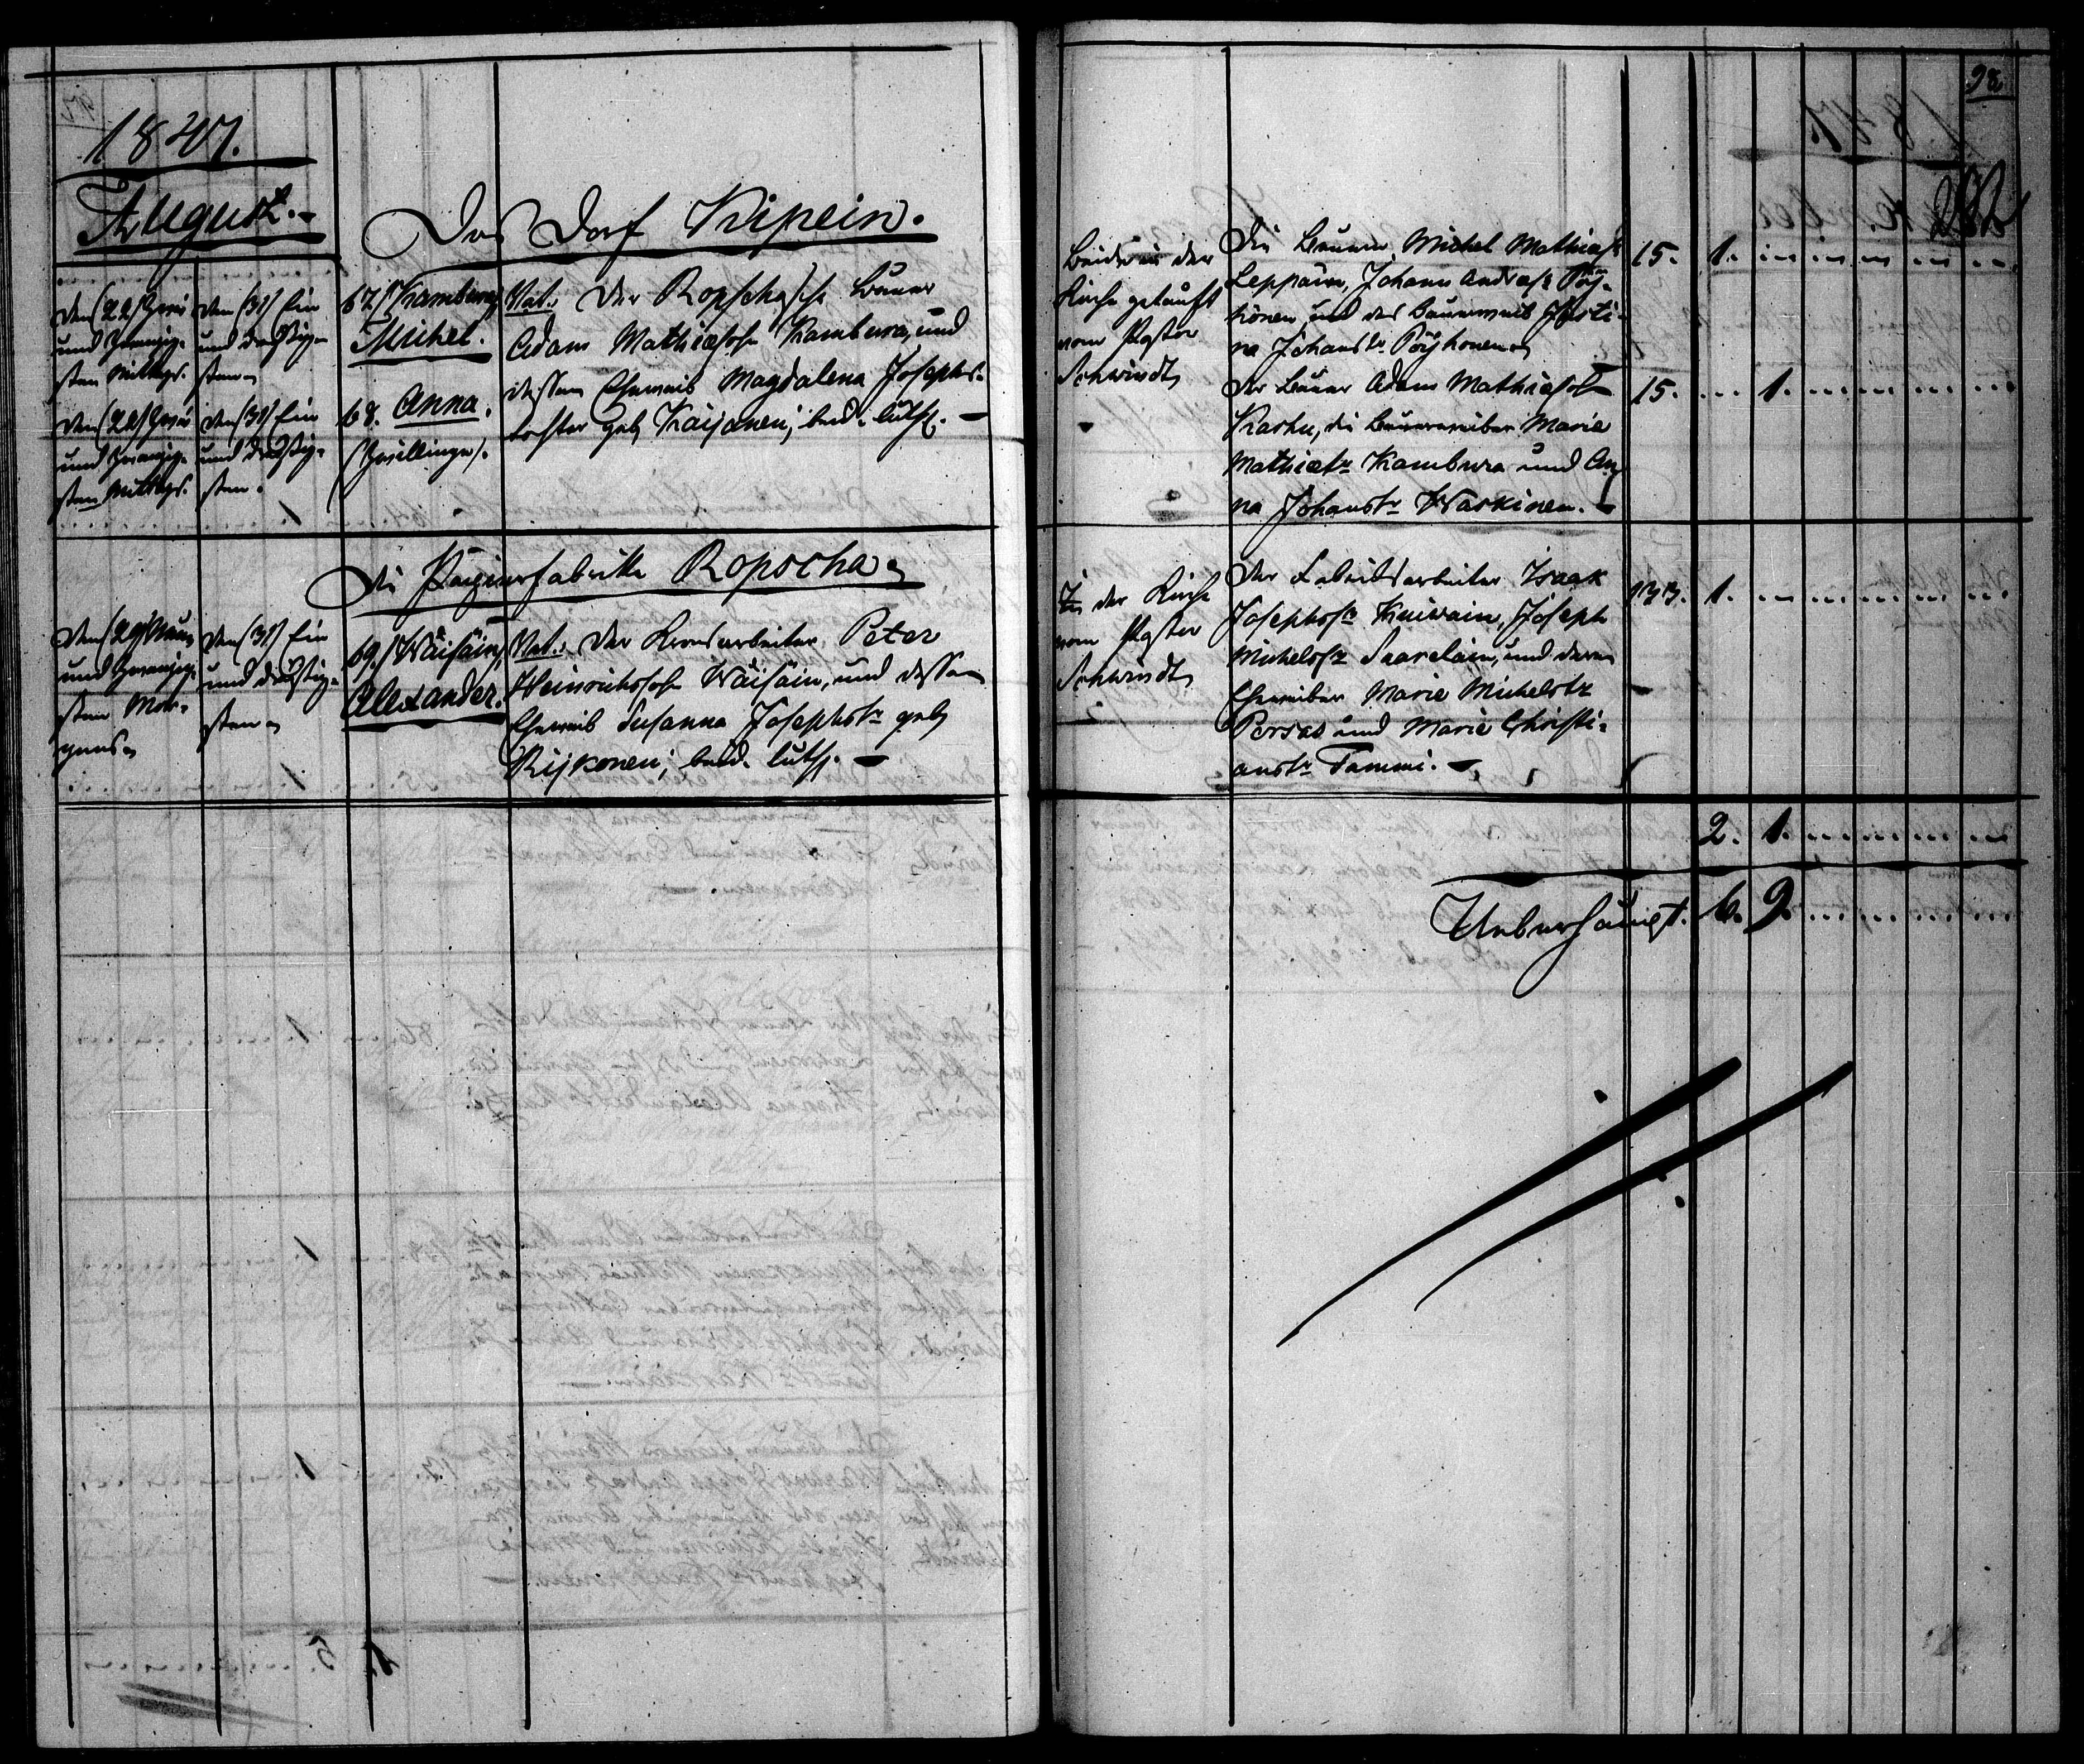 1847.
August.
Das Dorf Kipein.
den (22) Zwei
und Zwanzig-
sten Mittags.
den (31) Ein
und dreißig-
sten
67. (Kambura)
Michel.
Nat.: Der Ropschasche Bauer
Adam Mathiassohn Kambura, und
dessen Eheweib Magdalena Josephs-
tochter geb. Kaijanen; beid. luth.
den (22) Zwei
und Zwanzig-
sten Mittags.
den (31) Ein
und dreißig-
sten.
68. Anna.
(Zwillinge).
Die Papierfabrike Ropscha
den (29) Neun
und Zwanzig-
sten Mor-
gens
den (31) Ein
und dreißig-
sten
69. (Wäisäin)
Alexander.
Nat.: Der Kronsarbeiter Peter
Heinrichssohn Wäisäin, und dessen
Eheweib Susanna Josephstr geb.
Rijkonen; beid. luth.
98
Beide in der
Kirche getauft
vom Pastor
Schwindt
Die Bauern Michel Mathiass.
Leppäin, Johann Andreass Pöy-
hönen und das Bauernweib Justi-
na Johanstr Pöyhonen
15. 1.
Der Bauer Adam Mathiassohn
Karhu, die Bauernweiber Marie
Mathiastr Kambura und An-
na Johanstr Waskinen.
15. 1.
In der Kirche
vom Pastor
Schwindt
Der Fabriksarbeiter Isaak
Josephss Kuiwain, Joseph
Michelss Saarelain, und deren
Eheweiber Marie Michelstr
Porsas und Marie Christi-
anstr Tammi.
133. 1.
2. 1.
Ueberhaupt. 6. 9.